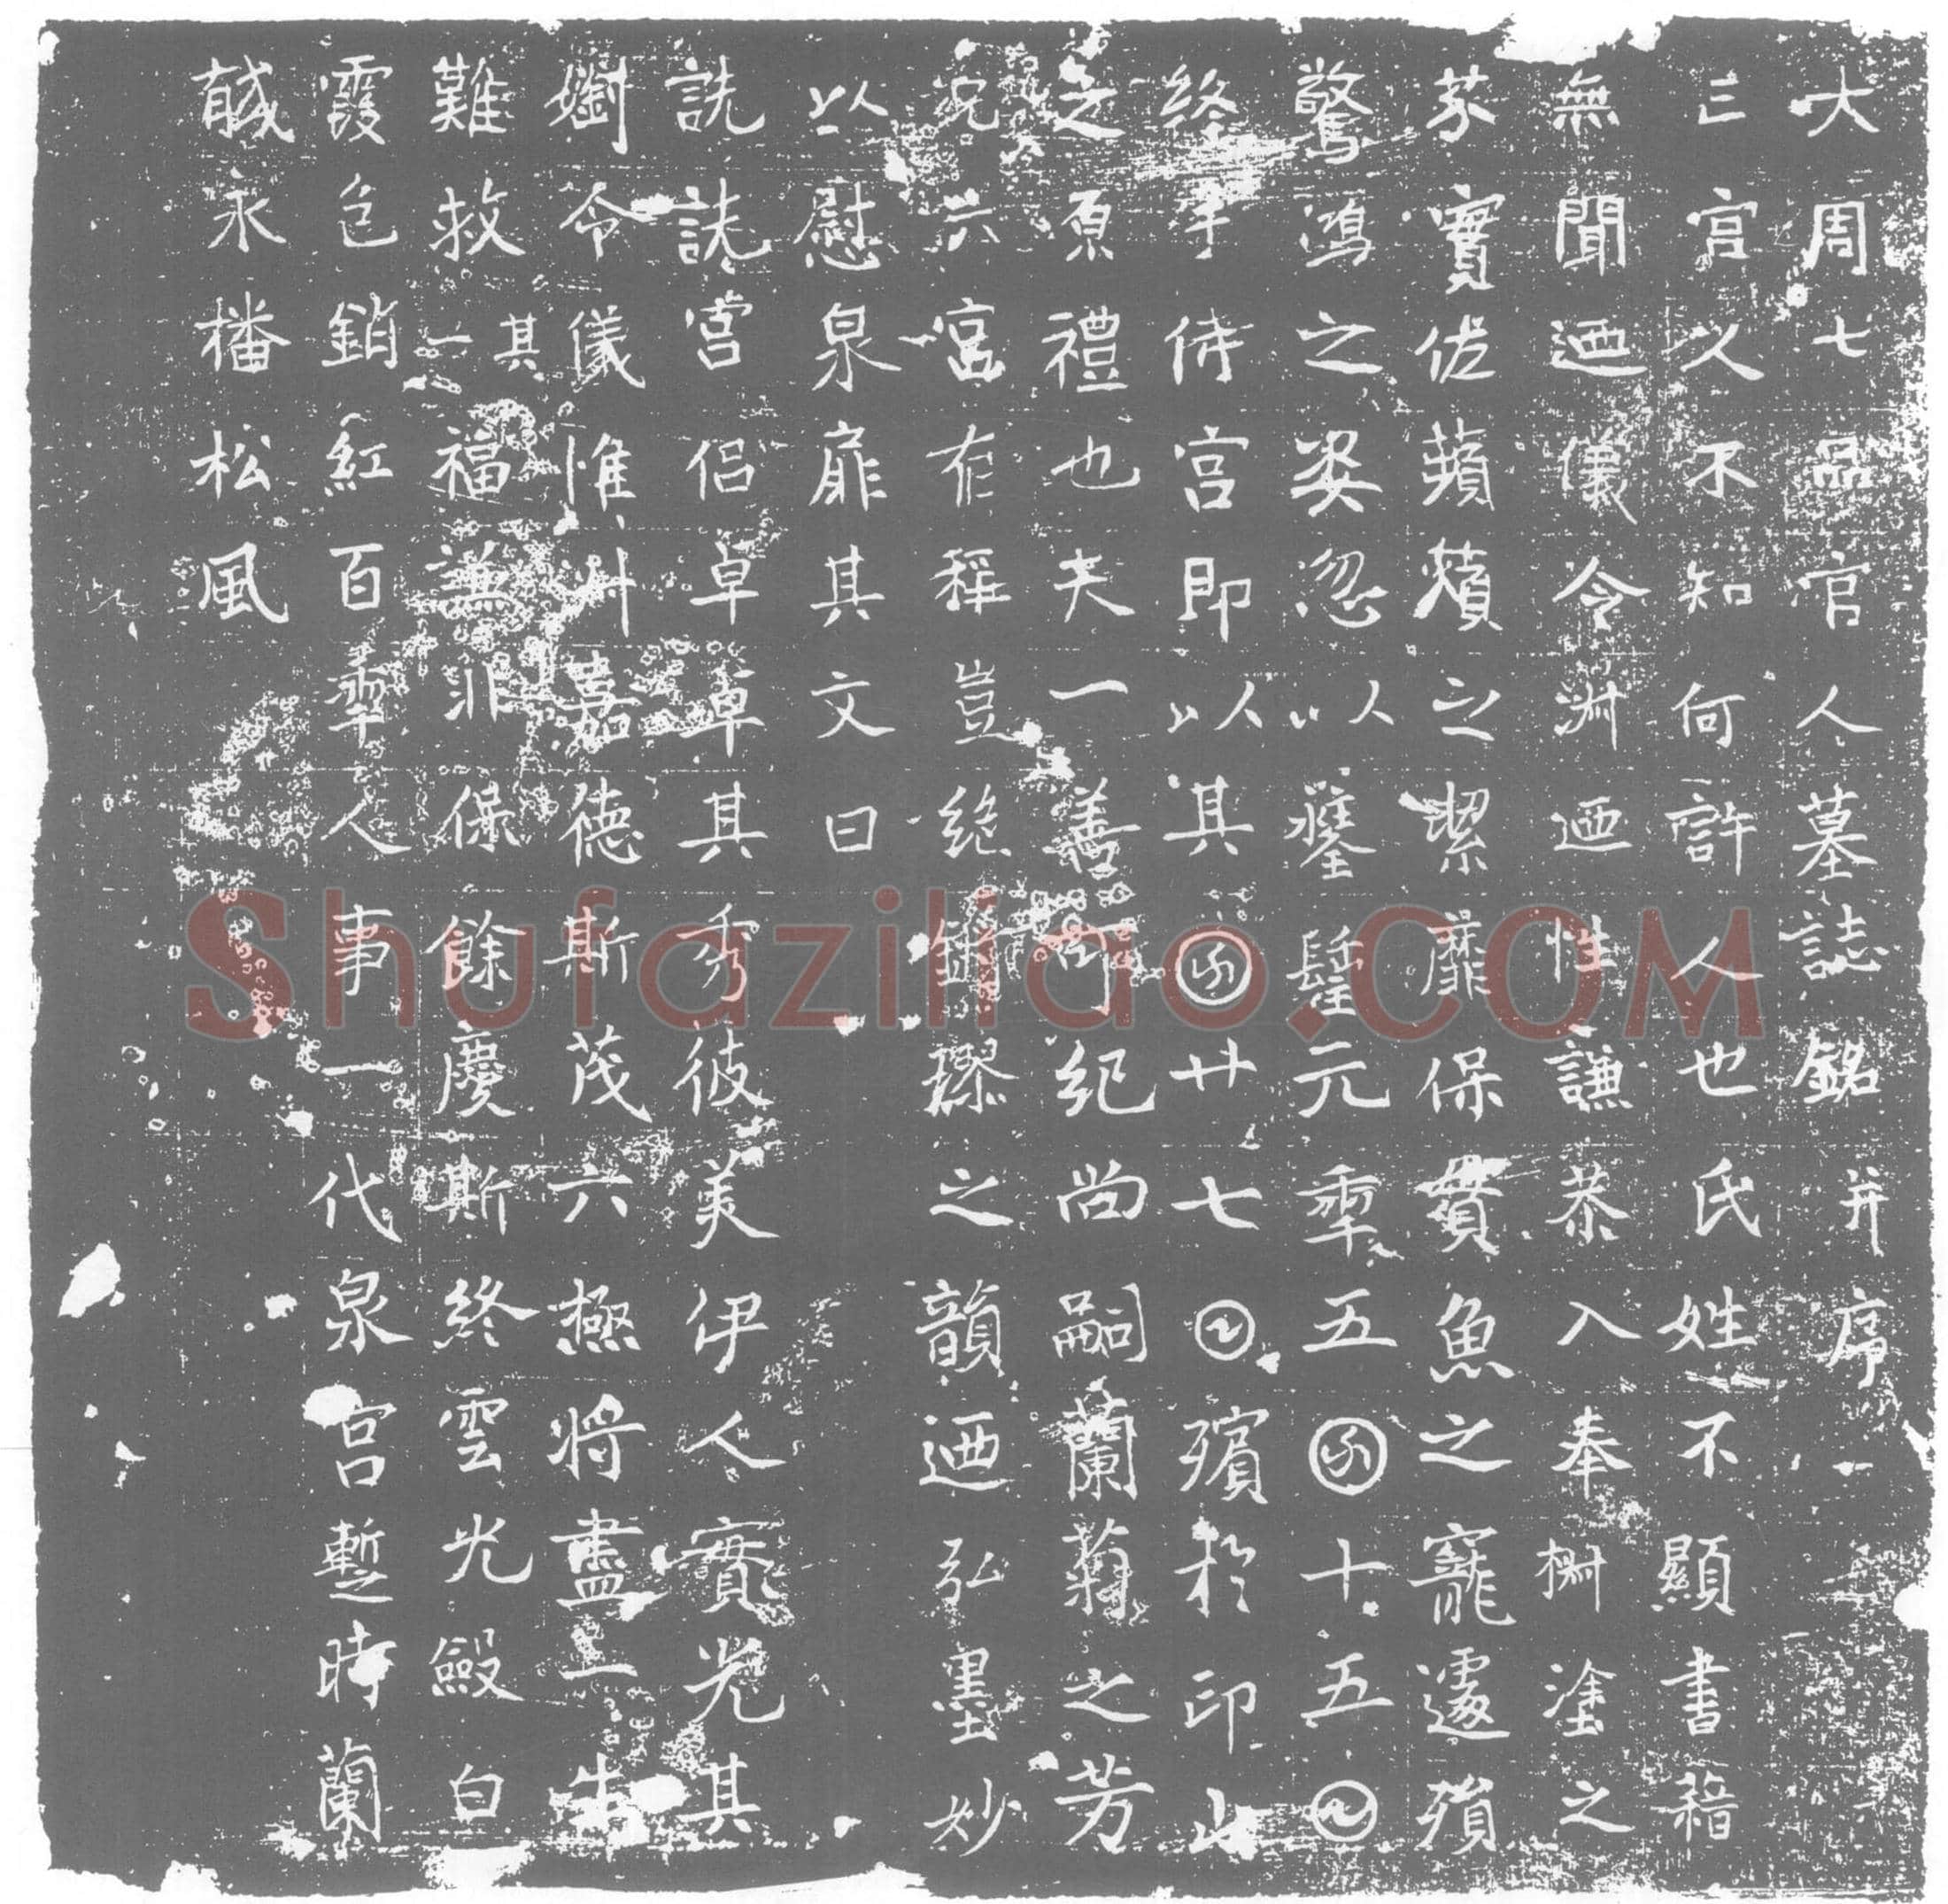 大周七品官人墓誌銘并序
亡宮以不知何許人也氏姓不顯書籍
無聞迺儀令淑迺性謙恭入奉椒塗之
芬實佐蘋蘩之潔靡保貫魚之寵遽殞
驚鴻之姿忽以證聖元𠡦五囝十五𡆠
終于侍宮即以其囝廿七𡆠殯於印山
之原禮也夫一善可紀尚嗣蘭菊之芳
況六宮有稱豈絕鏘璆之韻迺弘墨妙
以慰泉扉其文曰
詵詵宮侶卓卓其秀彼美伊人實光其
令儀惟淑嘉德斯茂六極將盡三生
難救其一福謙罪保餘慶斯終雲光斂白
霞色銷紅百𠡦人事一代泉宮暫時蘭
戫永播松風
shufaziliao.COM